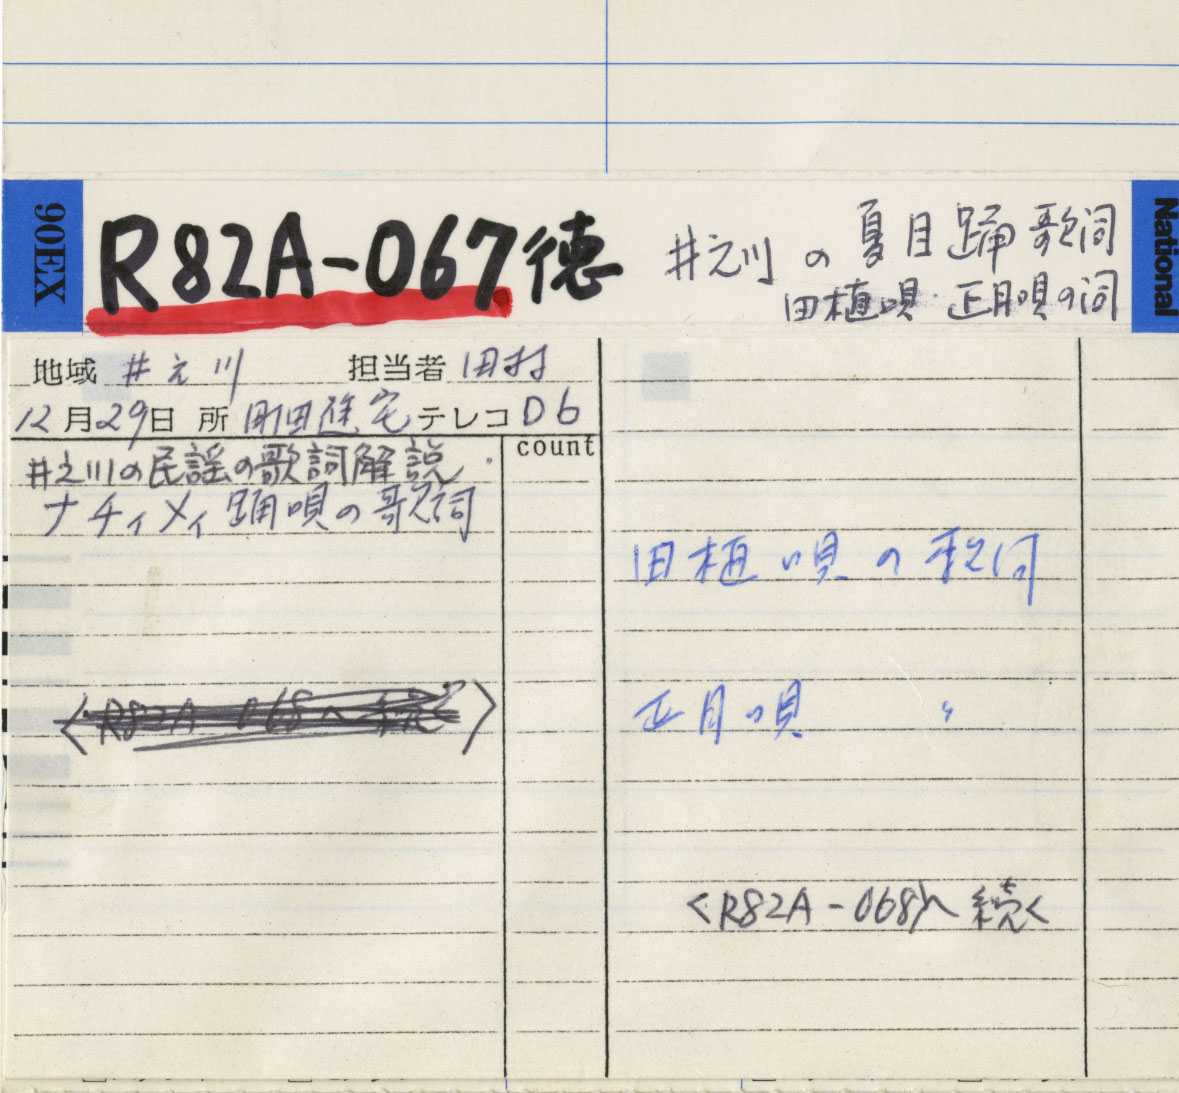 90EX
R82A-067徳
井之川の夏目踊歌詞
田植唄・正月唄の詞
National
地域 井之川 担当者 田村
12月29日 所 町田進宅 テレコ D6
count
井之川の民謡の歌詞解説
ナチィメィ踊唄の歌詞
<R82A-068へ続く>
田植唄の歌詞
正月唄 〃
<R82A-068>へ続く